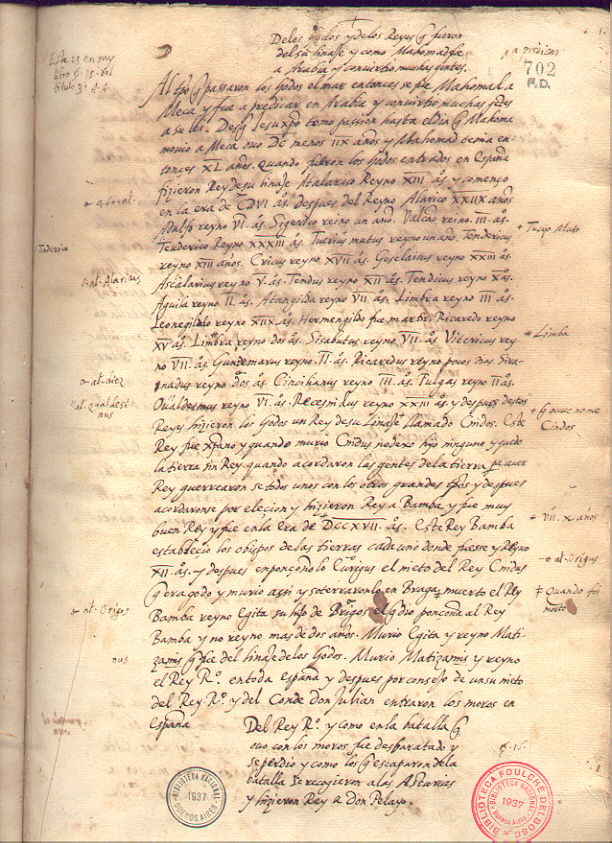 Delos godos y delos Reyes q̃ fueron
del su linaje y como Mahomad fue a predicar
a Arabia y convirtio muchas gentes.
702
R.D.
Esta es en my
libro §. 15. del
titulo 3º A.A.
Al tpõ q̃ passaron los Godos el mar entonces se fue Mahomat a
Meca y fue a predicar en Arabia y convirtio muchas gẽtes
a su lei. Desq̃ Jesuxp̃o tomo passion hasta el dia q̃ Mahoma
murio a Meca ovo DC menos IIX años y Mahomad tenia en-
tonces XL años. quando fueron los godos entrados en España
fizieron Rey de su linaje Atalarico Reyno XIII ãs. y començo
en la era de CDVI ãs. despues del Reyno Alarico XXIIX años
Adulfo reyno VI. ãs. Sigerdico reino un año. Valcas reino. III. ãs.
Terderico Reyno XXXIII ãs. Turius mutus reyno un año. Tendericus
reyno XIII años. Cricus reyno XVII ãs. Geselaius reyno XXIII ãs.
Ascalaricus reyno V. ãs. Tendus reyno XII ãs. Tendicus reyno X ãs.
Aguila reyno II. ãs. Atangilda reyno VII. ãs. Limbra reyno III ãs.
Leonegildo reyno XIIX. ãs. Hermengildo fue martir. Ricaredo reyno
XV ãs. Limbra reyno dos ãs. Sisabutus reyno VII. ãs. Vitericus rey-
no VII. ãs. Guntemarus reyno II. ãs. Ricaredus reyno pocos dias. Sira-
nadus reyno dos ãs. Cincilianus reyno III. ãs. Tulgas reyno II ãs.
reyno VI. ãs. Recesindus reyno XXIII ãs. y despues destos
Reyes hizieron los Godos un Rey de su linaje llamado Cindus. Este
Rey fue xp̃iano y quando murio Cindus no dexo hijo ninguno y quedo
la tierra sin Rey. quando acordaron las gentes de la tierra para aver
Rey guerrearon se todos unos con los otros grandes tpõs y despues
acordaronse por elecion y hizieron Rey a Bamba y fue muy
buen Rey y fue en la era de DCCXVII. ãs. Este Rey Bamba
establecio los obispos de las tierras cada uno donde fuesse y Reyno
XII. ãs. y despues enponçoñolo Eurigus el nieto del Rey Cindus
q̃ era godo y murio assi y soterraronlo en Braga. muerto el Rey
Bamba reyno Egita su hijo de Brigos el q̃ dio ponçoña al Rey
Bamba y no reyno mas de dos años. Murio Egita y reyno Mati-
zanus q̃ fue del linaje de los Godos. Murio Matizamis y reyno
el Rey Rº. en toda España y despues por consejo de un su nieto
del Rey Rº. y del Conde Don Julian entraron los moros en
España
Del Rey Rº. y como en la batalla q̃
ovo con los moros fue desbaratado y
se perdio y como los q̃ escaparon de la
batalla se recogieron a las Asturias
y hizieron Rey a Don Pelayo.
§. 16.
Tuderico
al. Alarinus
al. diez
al. qualdesi
nus
al. Origos
nus
Tucio Muto
Limba
q̃ ovue nome
Cindos
VII. X años
al. Origus
Quando fue
muerto
BIBLIOTECA NACIONAL
1937
BUENOS AIRES
BIBLIOTECA FOULCHÉ DELBOSC
BIBLIOTECA NACIONAL
1937
BUENOS AIRES